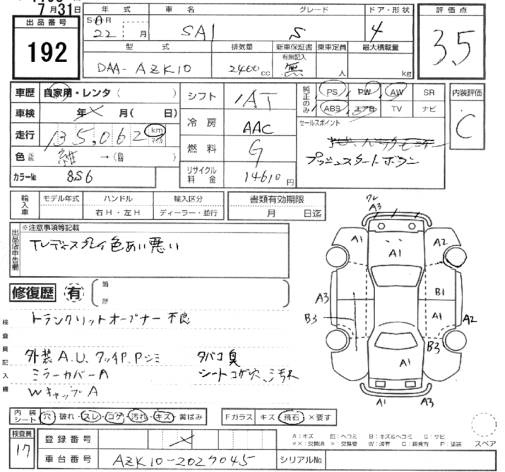 7月31日
出品番号
192
年式 車名 グレード ドア・形状
SAR 22 月 SAI S 4
評価点
3.5
型式 排気量 新車保証書 乗車定員 最大積載量
有無記入
DAA-AZK10 2400 cc 無 人 kg
車歴 自家用・レンタ( )
シフト 1AT
純正のみ PS PW AW SR
ABS エアB TV ナビ
内装評価
C
車検 年 × 月( 日)
冷房 AAC
セールスポイント
走行 135,062 km
燃料 G
プッシュスタートボタン
色 紺 →(
カラーNo 8S6
リサイクル料金 14610円
輸入車 モデル年式 ハンドル 輸入区分 書類有効期限
年 右H・左H ディーラー・並行 月 日迄
出品店申告欄
※注意事項等記載
TVディスプレイ色あい悪い
修復歴 有
検査員記入欄
トランクリットオープナー不良
外装A.U.クッイP.Pンミ タバコ臭
ミラーカバーA シートコゲ穴、汚れ
WキャップA
内装シート 穴 破れ・スレ・コゲ・汚れ・キズ・黄ばみ Fガラス キズ・飛石・×要す
検査員
17
登録番号 ×
車台番号 AZK10-2029045 シリアルNo.
A3
A1
A1 A2
A3 B1
A1
B3 A3 A2
A1
A1
A3
A:キズ E:エクボ B:キズ&ヘコミ S:サビ
スペア